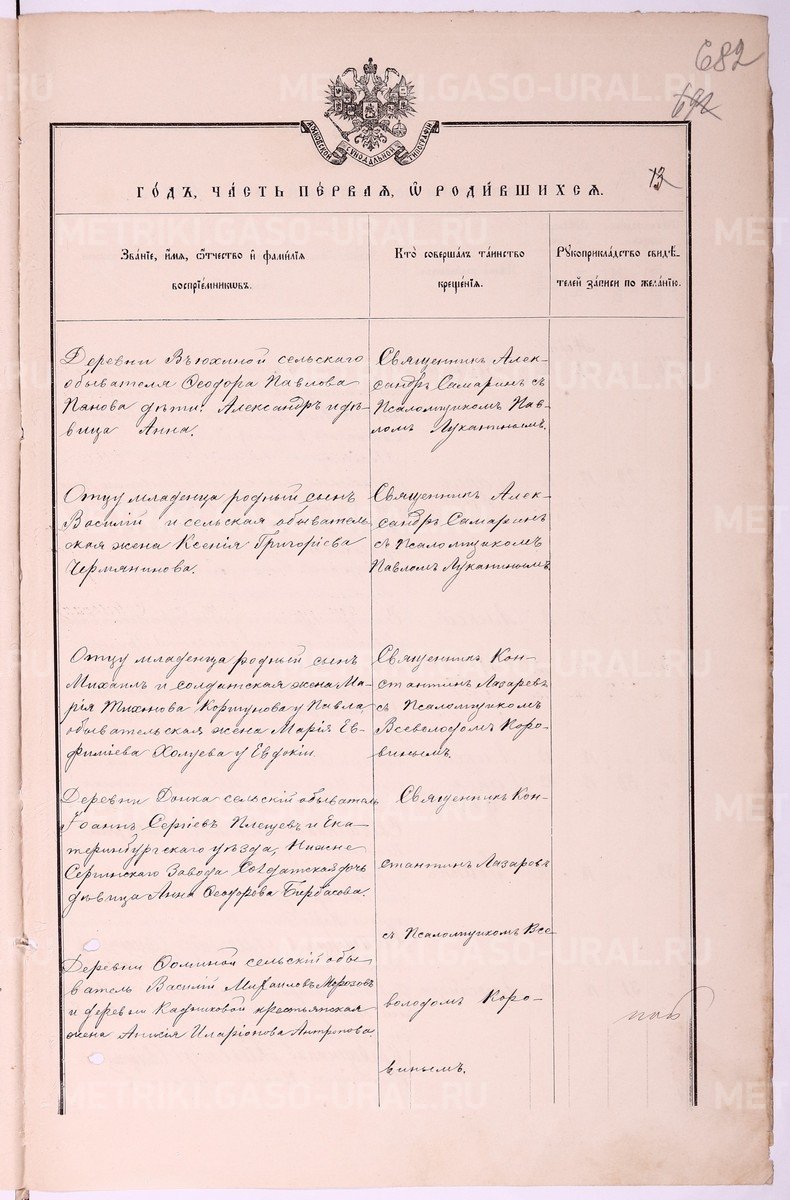 682
692
МОСКОВСКОЙ СѴНОДАЛЬНОЙ ТИПОГРАФІИ
13
ГО́ДЪ, ЧА́СТЬ ПЕ́РВАЯ, Ѡ҆ РОДИ́ВШИХСЯ.
Зва́ніе, и҆́мя, ѻ҆́тчество и҆ фами́лїя
воспріе́мниковъ.
Кто̀ соверша́лъ та́инство
креще́нїя.
Рꙋкоприкла́дство свидѣ́-
телей за́писи по жела́нїю.
Деревни Вьюхиной сельскаго
обывателя Ѳеодора Павлова
Панова дѣти: Александръ и дѣ-
вица Анна.
Священникъ Алек-
сандръ Самаринъ съ
Псаломщикомъ Пав-
ломъ Луканинымъ.
Отцу младенца родный сынъ
Василій и сельская обыватель-
ская жена Ксенія Григоріева
Чермянинова.
Священникъ Алек-
сандръ Самаринъ
съ Псаломщикомъ
Павломъ Луканинымъ.
Отцу младенца родный сынъ
Михаилъ и солдатская жена Ма-
рія Тихонова Коршунова у Павла
обывательская жена Марія Ев-
фиміева Холуева у Евдокіи
Священникъ Кон-
стантинъ Лазаревъ
съ Псаломщикомъ
Всеволодомъ Коро-
винымъ.
Деревни Донка сельскій обыватель
Іоаннъ Сергіевъ Плещевъ и Ека-
теринбургскаго уѣзда, Нижне
Сергинскаго Завода Солдатская дочь
дѣвица Анна Ѳеодорова Бирбасова.
Священникъ Кон-
стантинъ Лазаревъ
съ Псаломщикомъ Все-
володомъ Коро-
винымъ.
Деревни Ѳоминой сельскій обы-
ватель Василій Михаиловъ Морозовъ
и деревни Кадниковой крестьянская
жена Анисія Иларіонова Антропова.
METRIKI.GASO-URAL.RU